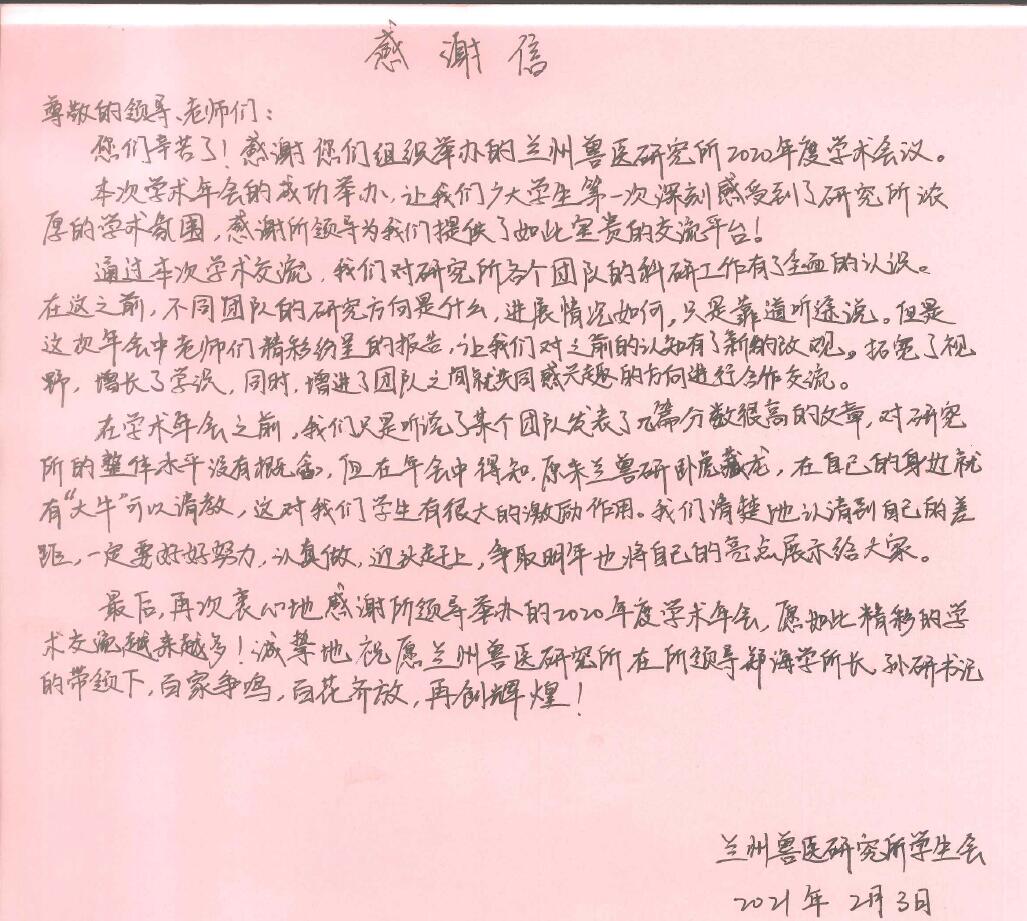 感谢信
尊敬的领导、老师们：
您们辛苦了！感谢您们组织举办的兰州兽医研究所2020年度学术会议。
本次学术年会的成功举办，让我们广大学生第一次深刻感受到了研究所浓
厚的学术氛围，感谢所领导为我们提供了如此宝贵的交流平台！
通过本次学术交流，我们对研究所各个团队的科研工作有了全面的认识。
在这之前，不同团队的研究方向是什么，进展情况如何，只是靠道听途说。但是
这次年会中老师们精彩纷呈的报告，让我们对之前的认知有了新的改观。拓宽了视
野，增长了学识，同时，增进了团队之间就共同感兴趣的方向进行合作交流。
在学术年会之前，我们只是听说了某个团队发表了几篇分数很高的文章，对研究
所的整体水平没有概念，但在年会中得知，原来兰兽研卧虎藏龙，在自己的身边就
有“大牛”可以请教，这对我们学生有很大的激励作用。我们清楚地认清到自己的差
距，一定要好好努力，认真做，迎头赶上，争取明年也将自己的亮点展示给大家。
最后，再次衷心地感谢所领导举办的2020年度学术年会，愿如此精彩的学
术交流越来越多！诚挚地祝愿兰州兽医研究所在所领导郑海学所长、孙研书记
的带领下，百家争鸣，百花齐放，再创辉煌！
兰州兽医研究所学生会
2021年2月3日